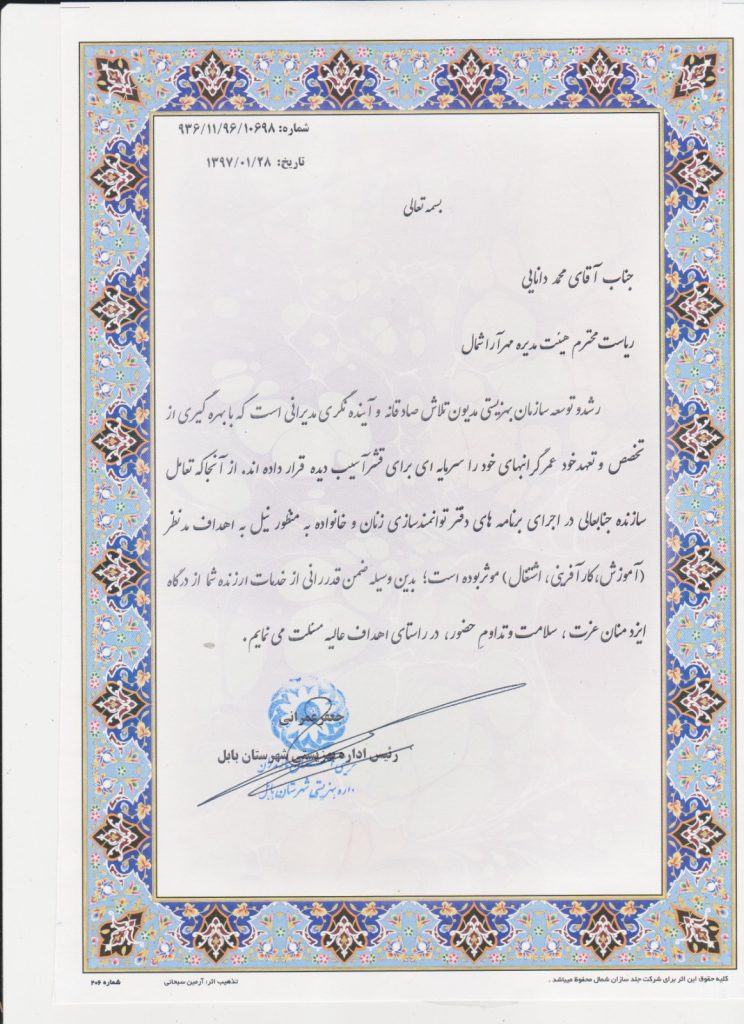 شماره: ۹۳۶/۱۱/۹۶/۱۰۶۹۸
تاریخ: ۱۳۹۷/۰۱/۲۸
بسمه تعالی
جناب آقای محمد دانایی
ریاست محترم هیئت مدیره مهرآرا شمال
رشد و توسعه سازمان بهزیستی مدیون تلاش صادقانه و آینده نگری مدیرانی است که با بهره گیری از
تخصص و تعهد خود عمر گرانبهای خود را سرمایه ای برای قشر آسیب دیده قرار داده اند. از آنجا که تعامل
سازنده جنابعالی در اجرای برنامه های دفتر توانمندسازی زنان و خانواده به منظور نیل به اهداف مد نظر
(آموزش، کارآفرینی، اشتغال) موثر بوده است؛ بدین وسیله ضمن قدردانی از خدمات ارزنده شما از درگاه
ایزد منان عزت، سلامت و تداومِ حضور، در راستای اهداف عالیه مسئلت می نمایم.
جعفر عمرانی
رئیس اداره بهزیستی شهرستان بابل
اداره بهزیستی شهرستان بابل
کلیه حقوق این اثر برای شرکت جلد سازان شمال محفوظ میباشد .
تذهیب اثر: آرمین سبحانی
شماره ۲۰۶